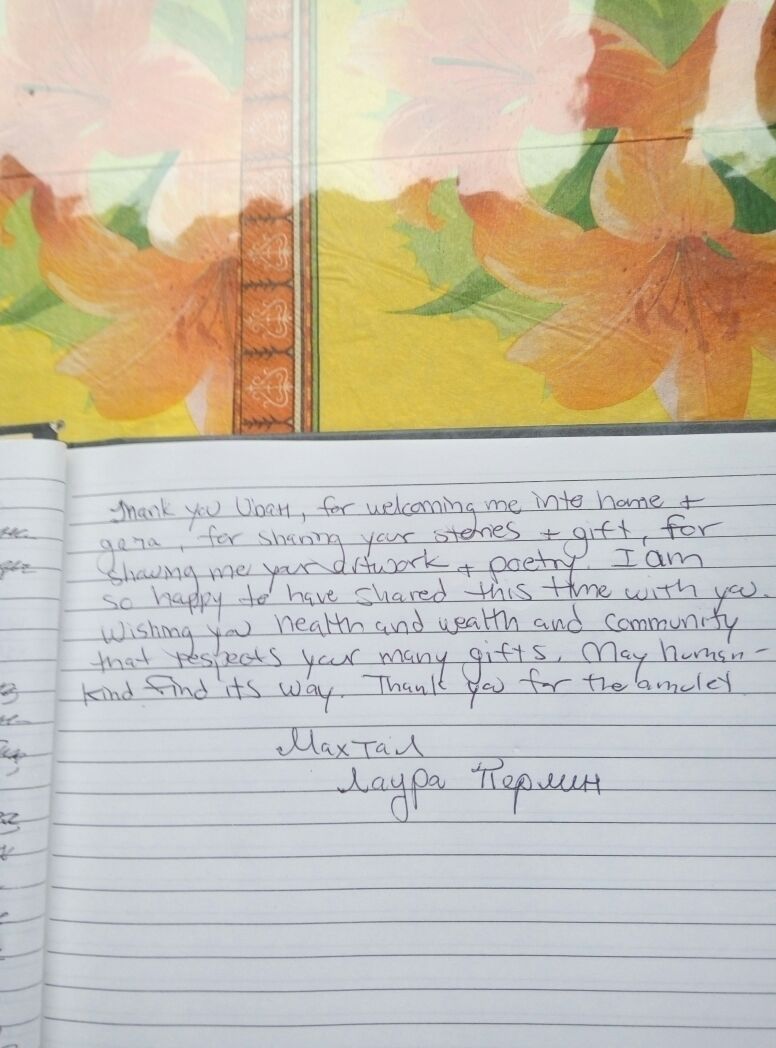 Thank you Uban, for welcoming me into home +
gaza, for sharing your stories + gift, for
showing me your artwork + poetry. I am
so happy to have shared this time with you.
Wishing you health and wealth and community
that respects your many gifts. May human-
kind find its way. Thank you for the amulet
Махтал
Лаура Перлин